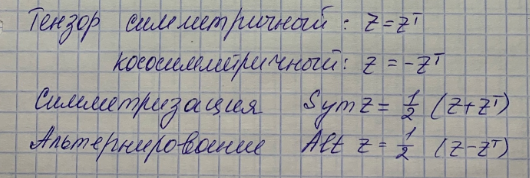 Тензор симметричный: z = zᵀ
кососимметричный: z = -zᵀ
Симметризация Sym z = 1/2 (z+zᵀ)
Альтернирование Alt z = 1/2 (z-zᵀ)